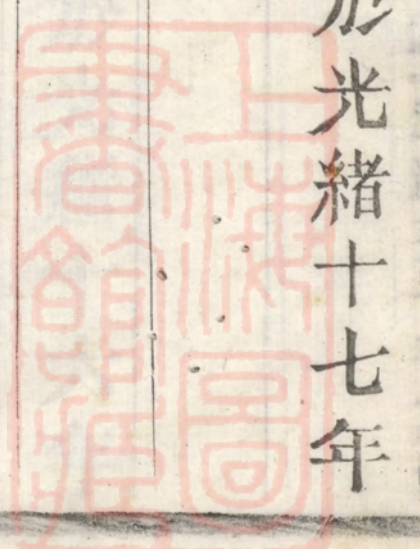 光緒十七年
上海圖
書館藏